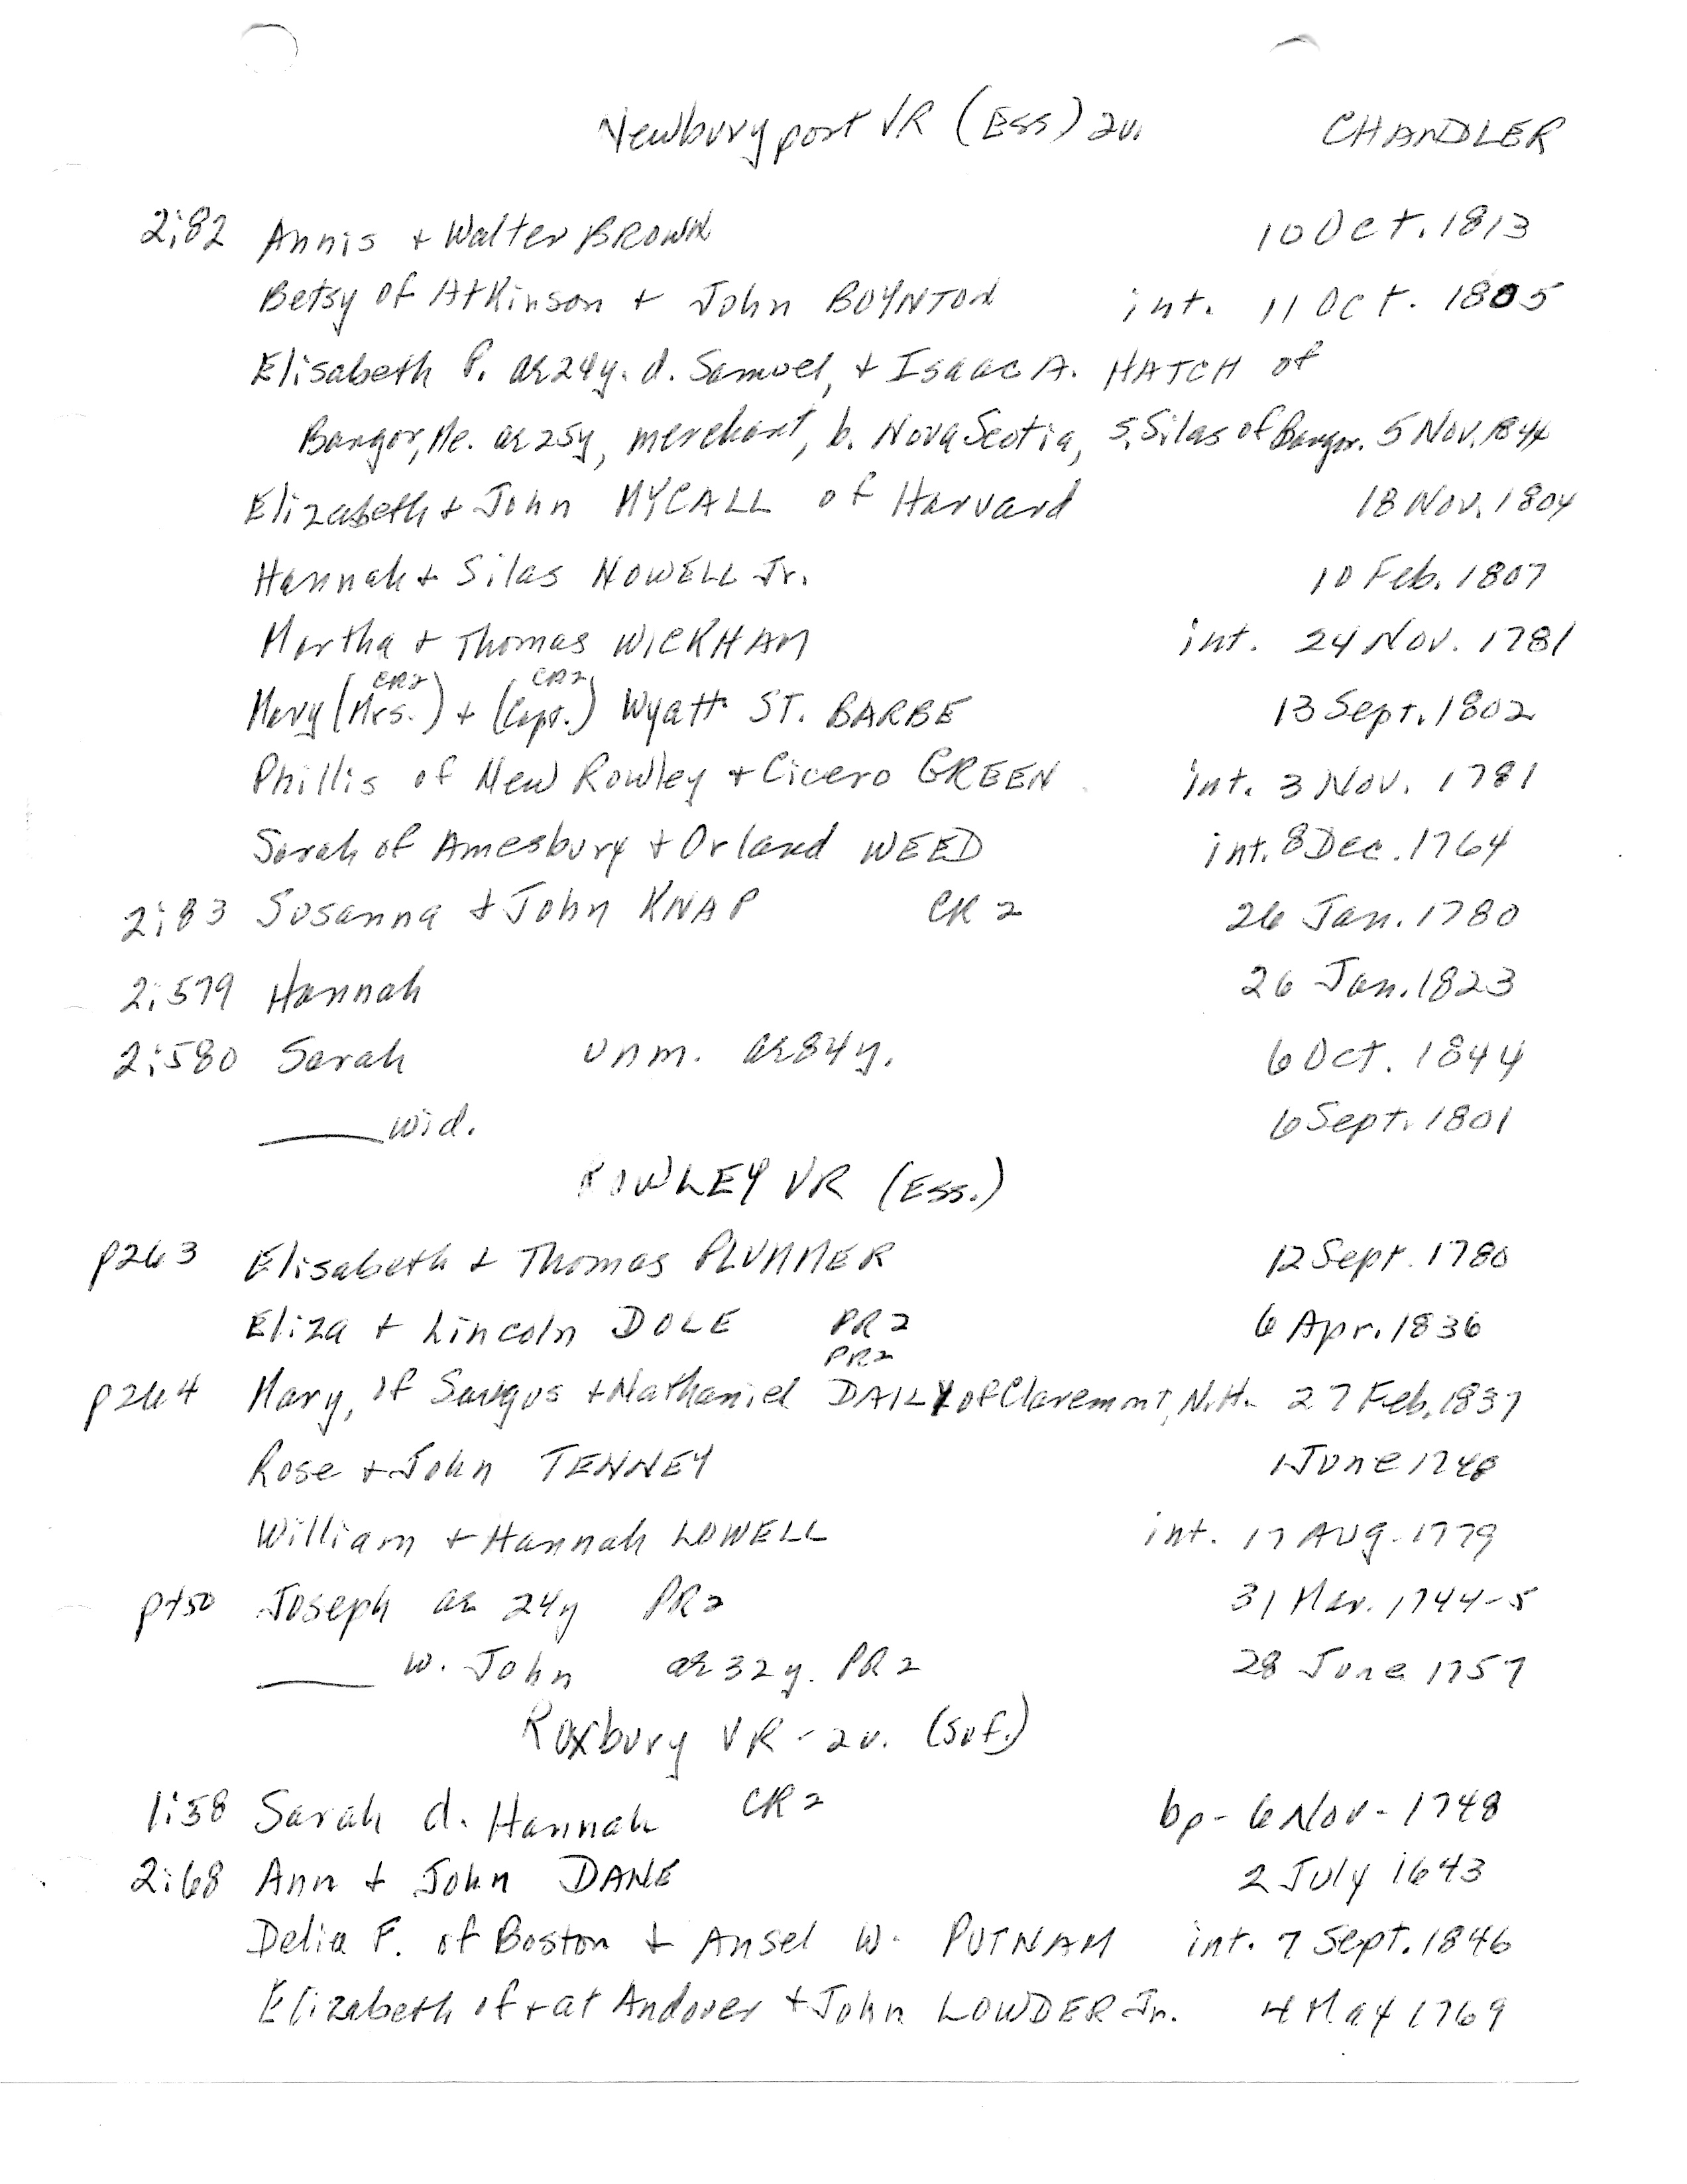 Newburyport VR (Ess) 2v. CHANDLER
2:82 Annis + Walter BROWN 10 Oct. 1813
Betsy of Atkinson + John BOYNTON int. 11 Oct. 1805
Elisabeth P. ae 24y. d. Samuel, + Isaac A. HATCH of
Bangor, Me. ae 25y, merchant, b. Nova Scotia, s. Silas of Bangor. 5 Nov. 1844
Elizabeth + John MYCALL of Harvard 18 Nov. 1804
Hannah + Silas NOWELL Jr. 10 Feb. 1807
Martha + Thomas WICKHAM int. 24 Nov. 1781
CR2 CR2
Mary (Mrs.) + (Capt.) Wyatt ST. BARBE 13 Sept. 1802
Phillis of New Rowley + Cicero GREEN int. 3 Nov. 1781
Sarah of Amesbury + Orland WEED int. 8 Dec. 1764
2:83 Susanna + John KNAP CR 2 26 Jan. 1780
2:579 Hannah 26 Jan. 1823
2:580 Sarah unm. ae 84y. 6 Oct. 1844
____ wid. 6 Sept. 1801
ROWLEY VR (Ess.)
p263 Elisabeth + Thomas PLUMMER 12 Sept. 1780
Eliza + Lincoln DOLE PR 2 6 Apr. 1836
PR2
p264 Mary, of Saugus + Nathaniel DAILY of Claremont, N.H. 27 Feb. 1837
Rose + John TENNEY 1 June 1748
William + Hannah LOWELL int. 17 Aug. 1779
p450 Joseph ae 24y PR2 31 Mar. 1744-5
____ w. John ae 32y. PR 2 28 June 1757
Roxbury VR - 2v. (Suf.)
1:58 Sarah d. Hannah CR 2 bp- 6 Nov- 1748
2:68 Ann + John DANE 2 July 1643
Delia F. of Boston + Ansel W. PUTNAM int. 7 Sept. 1846
Elizabeth of + at Andover + John LOWDER Jr. 4 May 1769